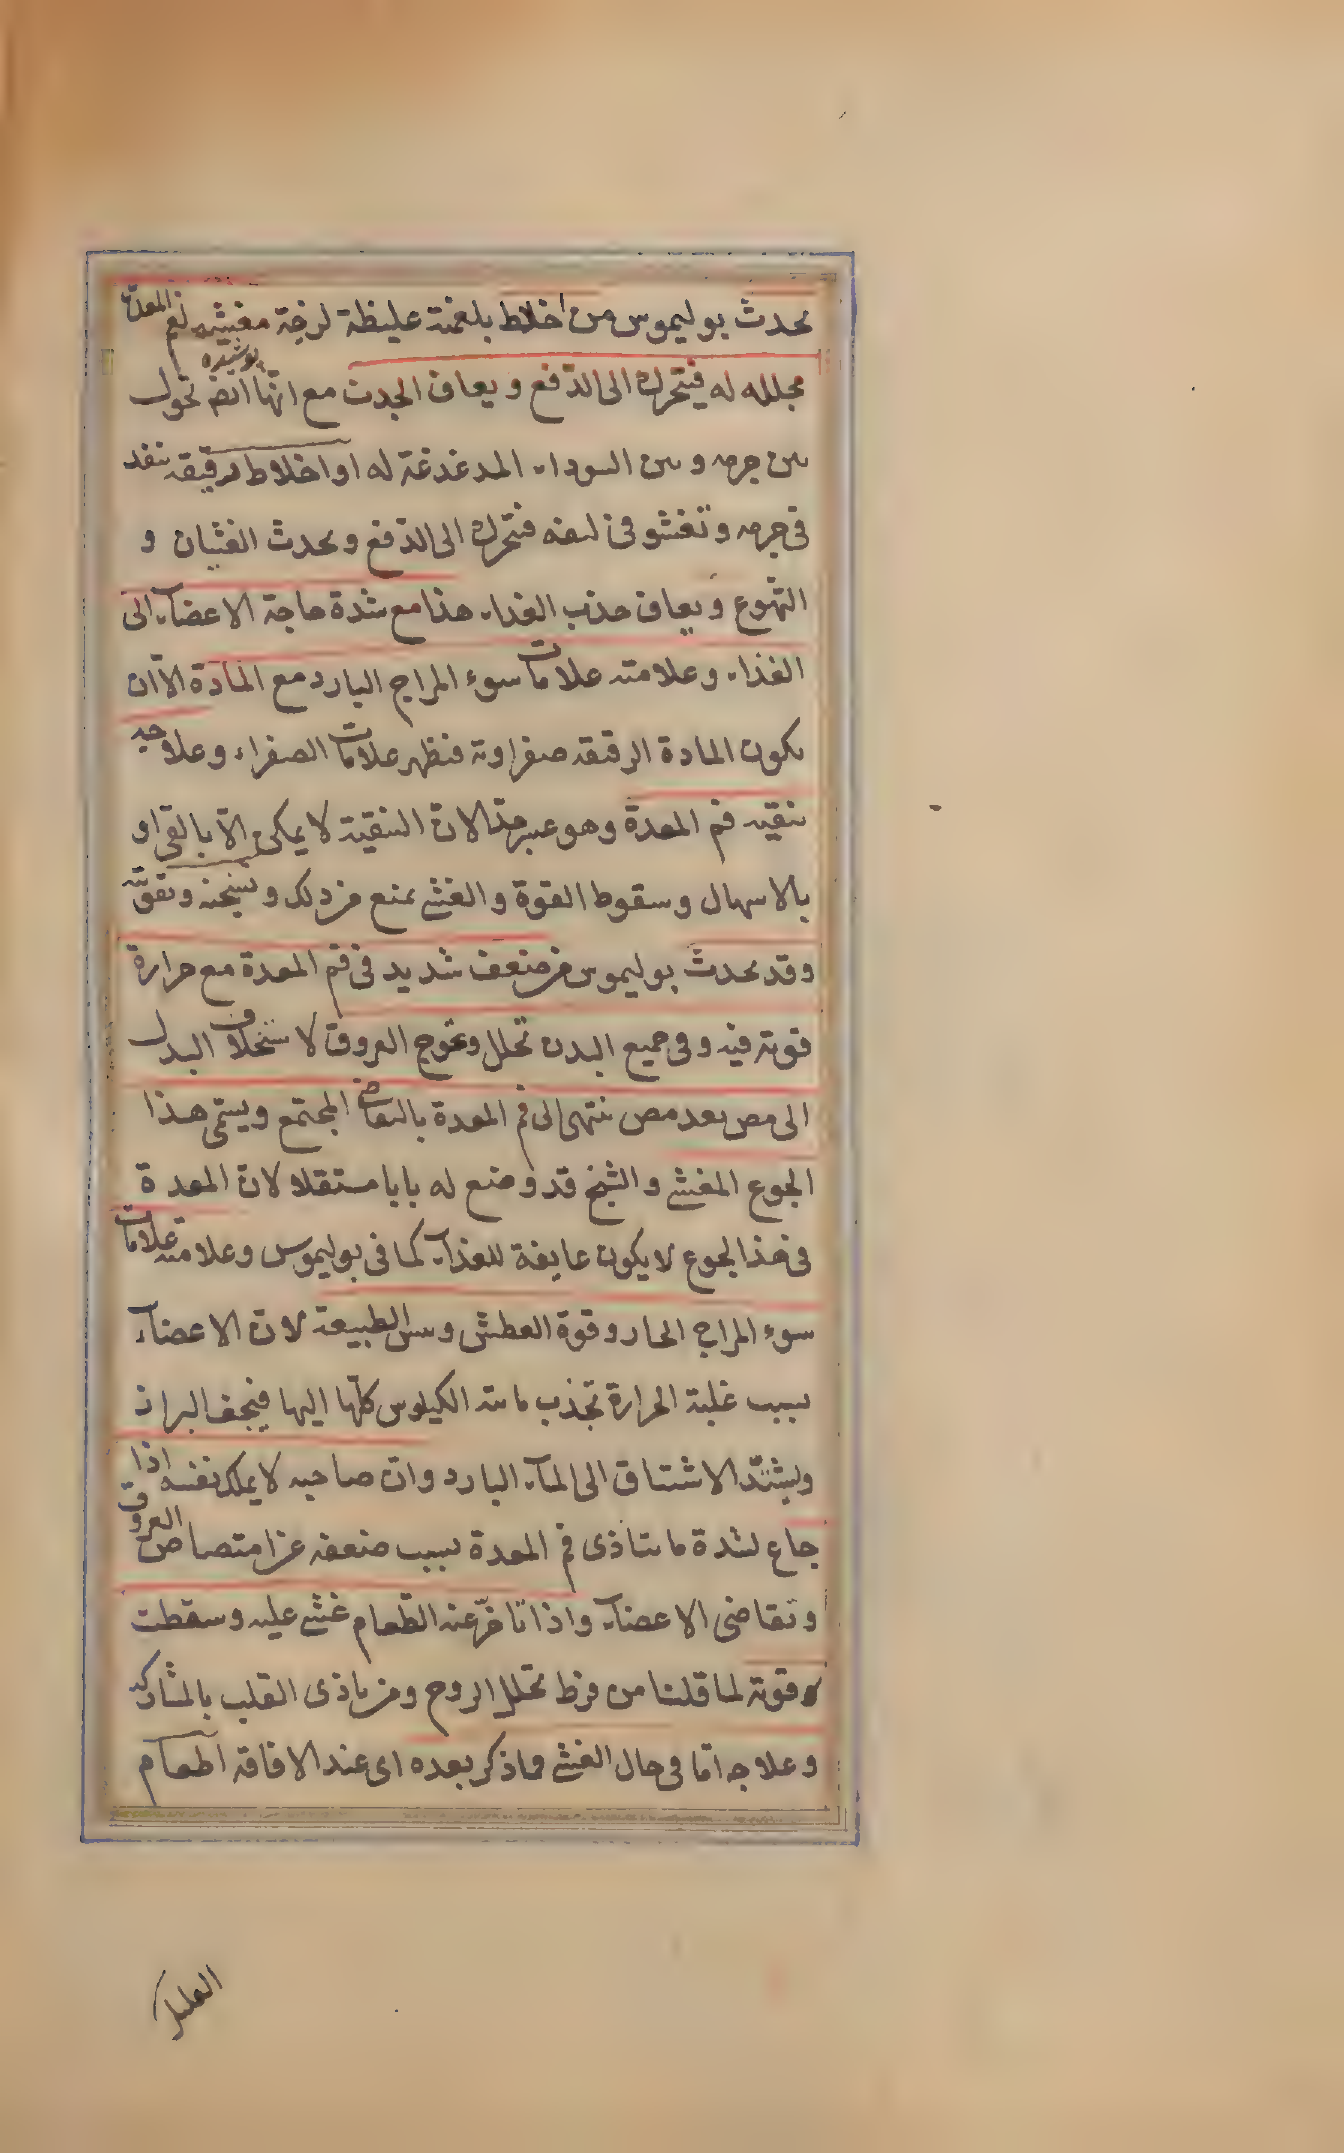 يحدث بوليموس من اخلاط بلغمية غليظة لزجة مغشيه لفم المعدة
پوشيده
مجلله له فيتحرك الى الدفع ويعاف الجذب مع انها ايضا تحول
بين جرمه وبين السوداء المدغدغة له او اخلاط رقيقه تنفذ
فى جرمه وتفشو فى ليفه فيتحرك الى الدفع ويحدث الغثيان و
التهوع ويعاف جذب الغذاء هذا مع شدة حاجة الاعضاء الى
الغذاء وعلامته علامات سوء المزاج البارد مع المادة الا ان
يكون المادة الرقيقه صفراوية فيظهر علامات الصفراء وعلاجه
تنقيه فم المعدة وهو عسر جدا لان التنقية لا يمكن الا بالقئ او
بالاسهال وسقوط القوة والغشى يمنع من ذلك وتسخينه وتقويته
وقد يحدث بوليموس من ضعف شديد فى فم المعدة مع حرارة
قوية فيه وفى جميع البدن تحلل وتحوج العروق لاستخلاف البدل
الى مص بعد مص ينتهى الى فم المعدة بالتقاضى المجتمع ويسمى هذا
الجوع المغشى والشيخ قد وضع له بابا مستقلا لان المعدة
فى هذا الجوع لا يكون عايفة للغذاء كما فى بوليموس وعلامته علامات
سوء المزاج الحار وقوة العطش ويبس الطبيعة لان الاعضاء
بسبب غلبة الحرارة تجذب مائية الكيلوس كلها اليها فيجف البراز
ويشتد الاشتياق الى الماء البارد وان صاحبه لا يملك نفسه اذا
جاع لشدة ما يتاذى فم المعدة بسبب ضعفه عن امتصاص العروق
وتقاضى الاعضاء واذا تاخر عنه الطعام غشى عليه وسقطت
قوته لما قلنا من فرط تحلل الروح ومن تاذى القلب بالمشاركة
وعلاجه اما فى حال الغشى فما ذكر بعده اى عند الافاقه اطعام
العليل